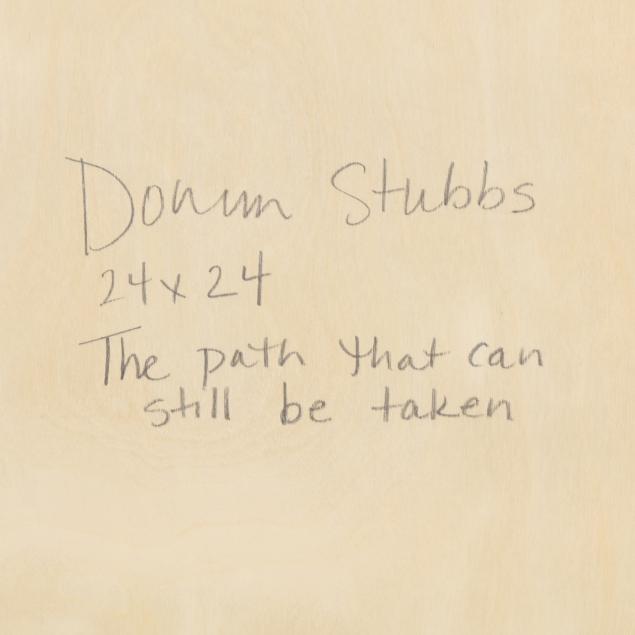 Donum Stubbs
24x24
The path that can
still be taken